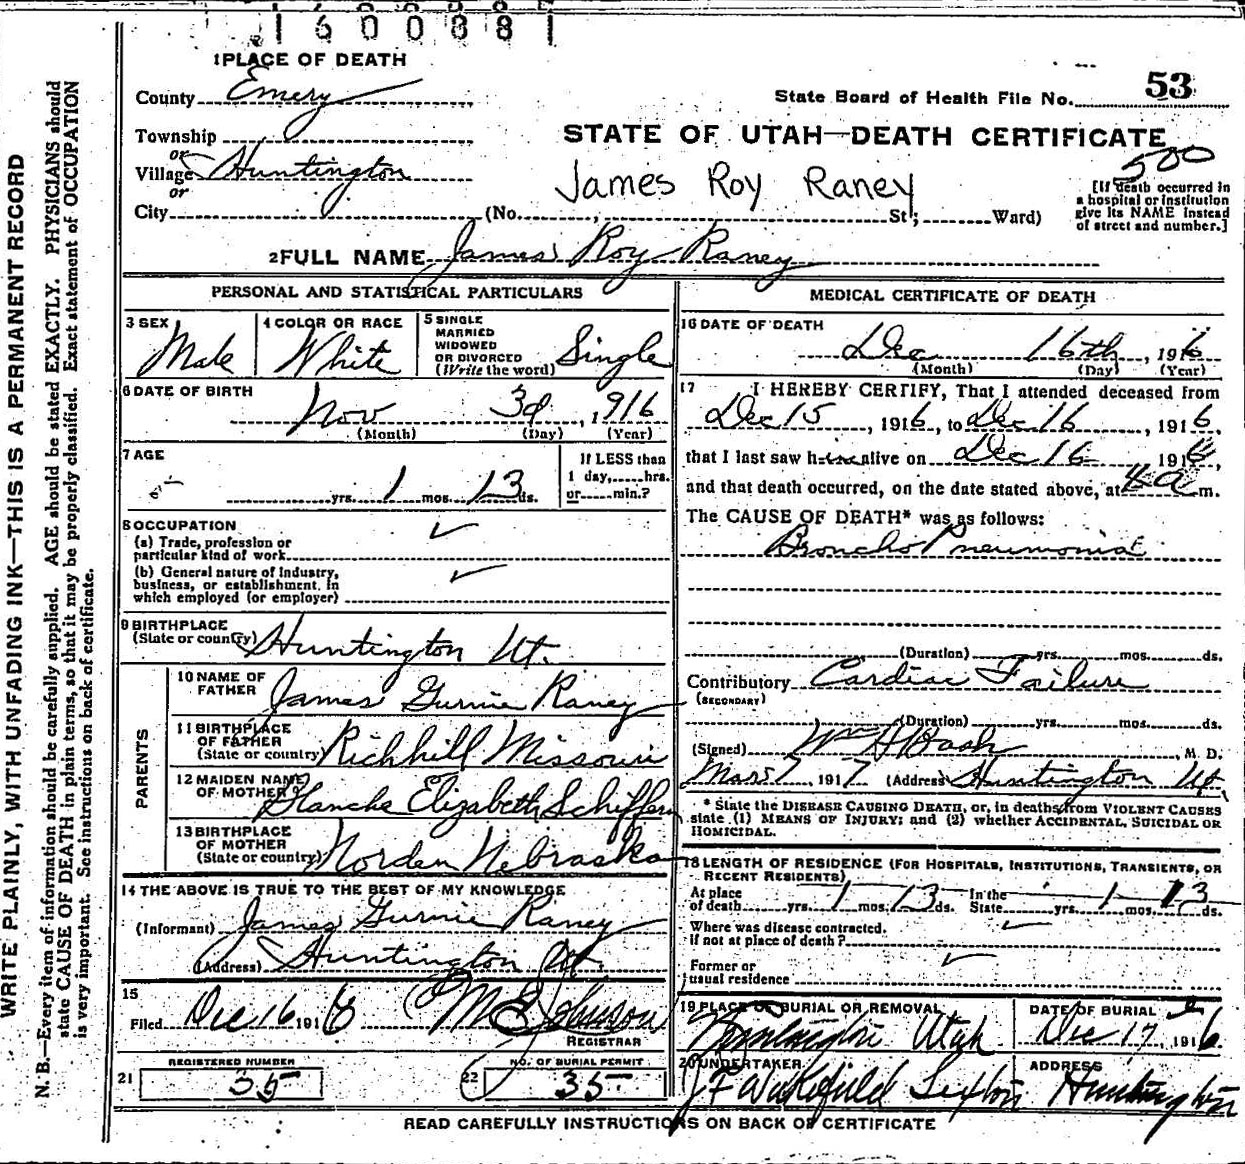 1600881
1 PLACE OF DEATH
County Emery
State Board of Health File No. 53
Township
or
STATE OF UTAH—DEATH CERTIFICATE
500
Village Huntington
or
James Roy Raney
City (No. , St; Ward)
[If death occurred in
a hospital or institution
give its NAME instead
of street and number.]
2 FULL NAME James Roy Raney
PERSONAL AND STATISTICAL PARTICULARS
3 SEX
Male
4 COLOR OR RACE
White
5 SINGLE
MARRIED
WIDOWED
OR DIVORCED
(Write the word)
Single
6 DATE OF BIRTH
Nov 3d , 1916
(Month) (Day) (Year)
7 AGE
yrs. 1 mos. 13 ds.
If LESS than
1 day, hrs.
or min.?
8 OCCUPATION
(a) Trade, profession or
particular kind of work
(b) General nature of Industry,
business, or establishment, in
which employed (or employer)
9 BIRTHPLACE
(State or country) Huntington Ut.
PARENTS
10 NAME OF
FATHER James Gurnie Raney
11 BIRTHPLACE
OF FATHER
(State or country) Richhill Missouri
12 MAIDEN NAME
OF MOTHER Blanche Elizabeth Schiffern
13 BIRTHPLACE
OF MOTHER
(State or country) Norden Nebraska
14 THE ABOVE IS TRUE TO THE BEST OF MY KNOWLEDGE
(Informant) James Gurnie Raney
(Address) Huntington Ut.
15
Filed Dec 16 1916 M E Johnson
REGISTRAR
REGISTERED NUMBER
21 35
NO. OF BURIAL PERMIT
22 35
MEDICAL CERTIFICATE OF DEATH
16 DATE OF DEATH
Dec 16th , 1916
(Month) (Day) (Year)
17 I HEREBY CERTIFY, That I attended deceased from
Dec 15 , 1916, to Dec 16 , 1916,
that I last saw him alive on Dec 16 1916,
and that death occurred, on the date stated above, at 4 a m.
The CAUSE OF DEATH* was as follows:
Broncho Pneumonia
(Duration) yrs. mos. ds.
Contributory Cardiac Failure
(SECONDARY)
(Duration) yrs. mos. ds.
(Signed) Wm H Bash , M D.
Mar 7 1917 (Address) Huntington Ut,
* State the DISEASE CAUSING DEATH, or, in deaths from VIOLENT CAUSES
state (1) MEANS OF INJURY; and (2) whether ACCIDENTAL, SUICIDAL OR
HOMICIDAL.
18 LENGTH OF RESIDENCE (FOR HOSPITALS, INSTITUTIONS, TRANSIENTS, OR
RECENT RESIDENTS)
At place
of death yrs. 1 mos. 13 ds.
In the
State yrs. 1 mos. 13 ds.
Where was disease contracted.
if not at place of death?
Former or
usual residence
19 PLACE OF BURIAL OR REMOVAL
Huntington Utah
DATE OF BURIAL
Dec 17 1916.
20 UNDERTAKER
J F Wakefield Sexton
ADDRESS
Huntington
READ CAREFULLY INSTRUCTIONS ON BACK OF CERTIFICATE
WRITE PLAINLY, WITH UNFADING INK—THIS IS A PERMANENT RECORD
N. B.—Every item of information should be carefully supplied. AGE should be stated EXACTLY. PHYSICIANS should
state CAUSE OF DEATH in plain terms, so that it may be properly classified. Exact statement of OCCUPATION
is very important. See instructions on back of certificate.